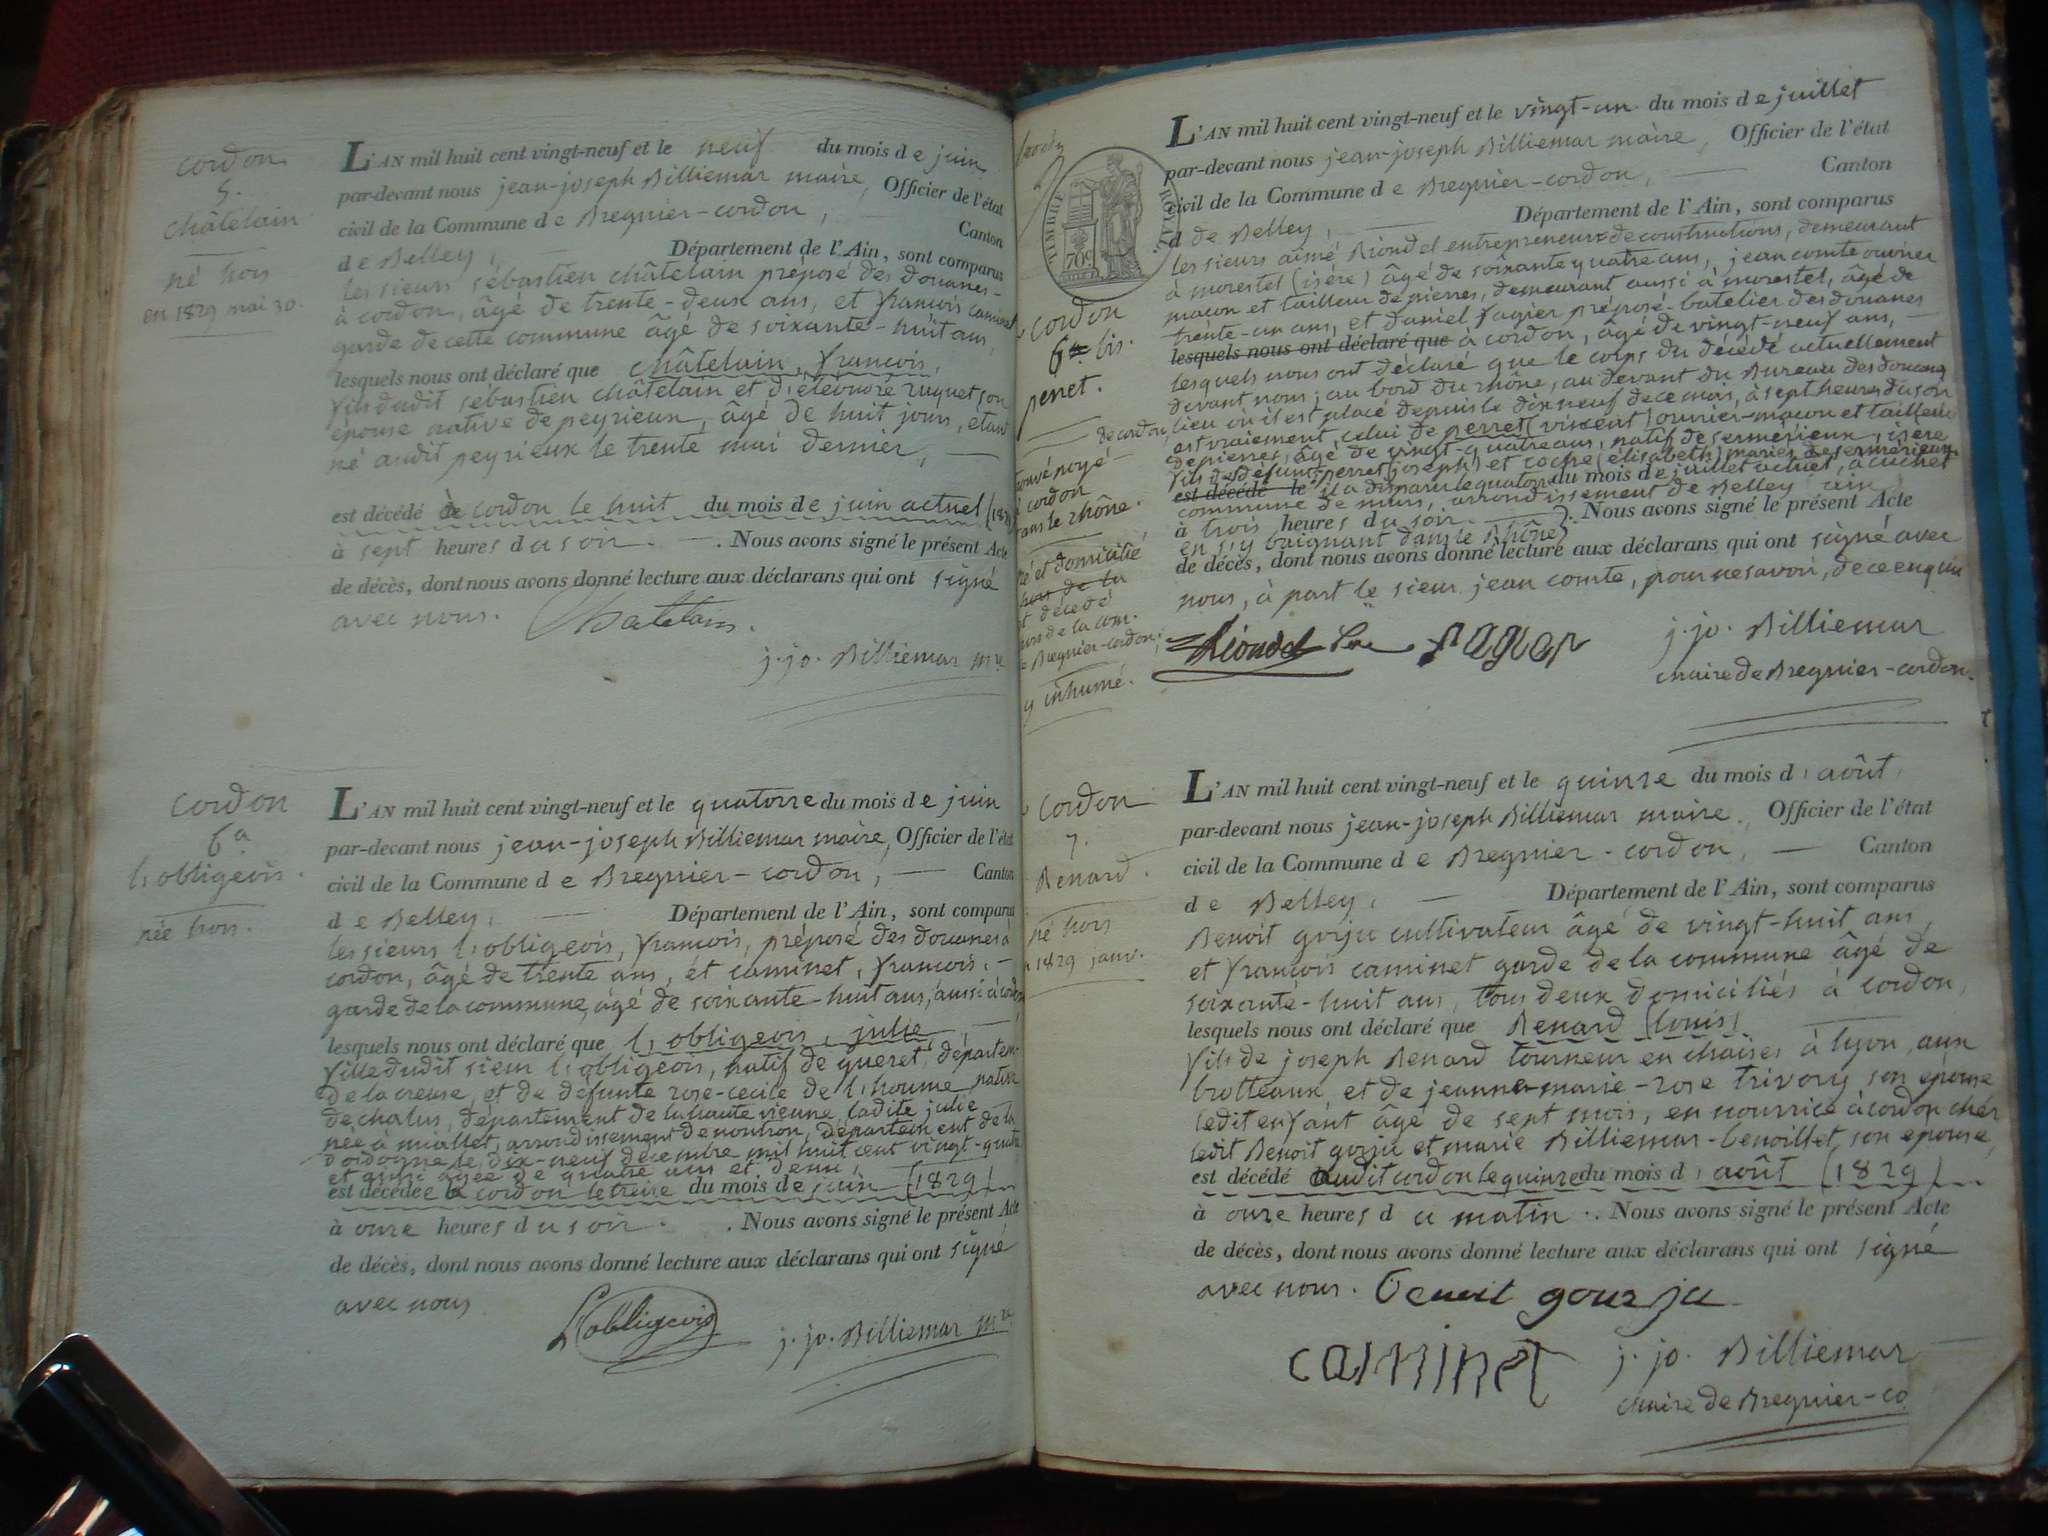 cordon
5.
châtelain
né hors
en 1829 mai 30.
L'AN mil huit cent vingt-neuf et le neuf du mois de juin
par-devant nous jean-joseph Billiemar maire, Officier de l'état
civil de la Commune de Bregnier-cordon, Canton
de Belley, Département de l'Ain, sont comparus
les sieurs sébastien châtelain préposé des douanes
à cordon, âgé de trente-deux ans, et françois caminet
garde de cette commune âgé de soixante-huit ans,
lesquels nous ont déclaré que châtelain, françois,
fils dudit sébastien châtelain et d'éléonore ruquet son
épouse native de peyrieux, âgé de huit jours, etant
né audit peyrieux le trente mai dernier,
est décédé à cordon le huit du mois de juin actuel (182
à sept heures du soir. Nous avons signé le présent Acte
de décès, dont nous avons donné lecture aux déclarans qui ont signé
avec nous. Chatelain.
j. jo. Billiemar mre
cordon
6a
l'obligeois.
née hors.
L'AN mil huit cent vingt-neuf et le quatorze du mois de juin
par-devant nous jean-joseph Billiemar maire, Officier de l'état
civil de la Commune de Bregnier-cordon, Canton
de Belley, Département de l'Ain, sont comparus
les sieurs l'obligeois, françois, préposé des douanes à
cordon, âgé de trente ans, et caminet, françois,
garde de la commune, âgé de soixante-huit ans, aussi à cordon
lesquels nous ont déclaré que l'obligeois, julie,
fille dudit sieur l'obligeois, natif de gueret, départem.
de la creuse, et de défunte rose-cecile de l'houme native
de chalus, département de la haute vienne, ladite julie
née à miallet, arrondissement de nontron, département de la
dordogne le dix-neuf decembre mil huit cent vingt-quatre
et ainsi agée de quatre ans et demi,
est décédée à cordon le treize du mois de juin (1829)
à onze heures du soir. Nous avons signé le présent Acte
de décès, dont nous avons donné lecture aux déclarans qui ont signé
avec nous
L'obligeois j. jo. Billiemar mre
TIMBRE ROYAL
cordon
6 bis.
perret.
trouvé noyé
à cordon
dans le rhône.
né et domicilié
hors de la
et décédé
hors de la com.
de Bregnier-cordon,
y inhumé.
L'AN mil huit cent vingt-neuf et le vingt-un du mois de juillet
par-devant nous jean-joseph Billiemar maire, Officier de l'état
civil de la Commune de Bregnier-cordon, Canton
d de Belley, Département de l'Ain, sont comparus
les sieurs aimé Rioudel entrepreneur de constructions, demeurant
à morestel (isère) âgé de soixante quatre ans, jean comte ouvrier
maçon et tailleur de pierres, demeurant aussi à morestel, âgé de
trente-un ans, et daniel fagier préposé-batelier des douanes
lesquels nous ont déclaré que à cordon, âgé de vingt-neuf ans,
lesquels nous ont déclaré que le corps du décédé actuellement
devant nous, au bord du rhône, au devant du Bureau des douanes
de cordon, lieu où il est placé depuis le dix neuf de ce mois, à sept heures du soir
est vraiment celui de perret (vincent) ouvrier-maçon et tailleur
de pierres, âgé de vingt-quatre ans, natif de sermerieux, isère
fils de défunt perret (joseph) et coche (élisabeth) mariés de sermerieux.
est décédé le il a disparu le quatorze du mois de juillet actuel, à cuchet
commune de murs, arrondissement de Belley ain
à trois heures du soir. Nous avons signé le présent Acte
en s'y baignant dans le Rhône
de décès, dont nous avons donné lecture aux déclarans qui ont signé avec
nous, à part le sieur jean comte, pour ne savoir, de ce enquis
Rioudel fagier j. jo. Billiemar
maire de Bregnier-cordon.
cordon
7.
Renard.
né hors
1829 janv.
L'AN mil huit cent vingt-neuf et le quinze du mois d'août,
par-devant nous jean-joseph Billiemar maire, Officier de l'état
civil de la Commune de Bregnier-cordon, Canton
de Belley, Département de l'Ain, sont comparus
Benoit gorju cultivateur âgé de vingt-huit ans,
et françois caminet garde de la commune âgé de
soixante-huit ans, tous deux domiciliés à cordon,
lesquels nous ont déclaré que Renard (louis)
fils de joseph Renard tourneur en chaises à lyon, aux
brotteaux, et de jeanne-marie-rose trivory son epouse
ledit enfant âgé de sept mois, en nourrice à cordon chés
ledit Benoit gorju et marie Billiemar-benoillet, son epouse,
est décédé audit cordon le quinze du mois d'août (1829)
à onze heures du matin. Nous avons signé le présent Acte
de décès, dont nous avons donné lecture aux déclarans qui ont signé
avec nous. Benoit gourju
caminet j. jo. Billiemar
maire de Bregnier-co